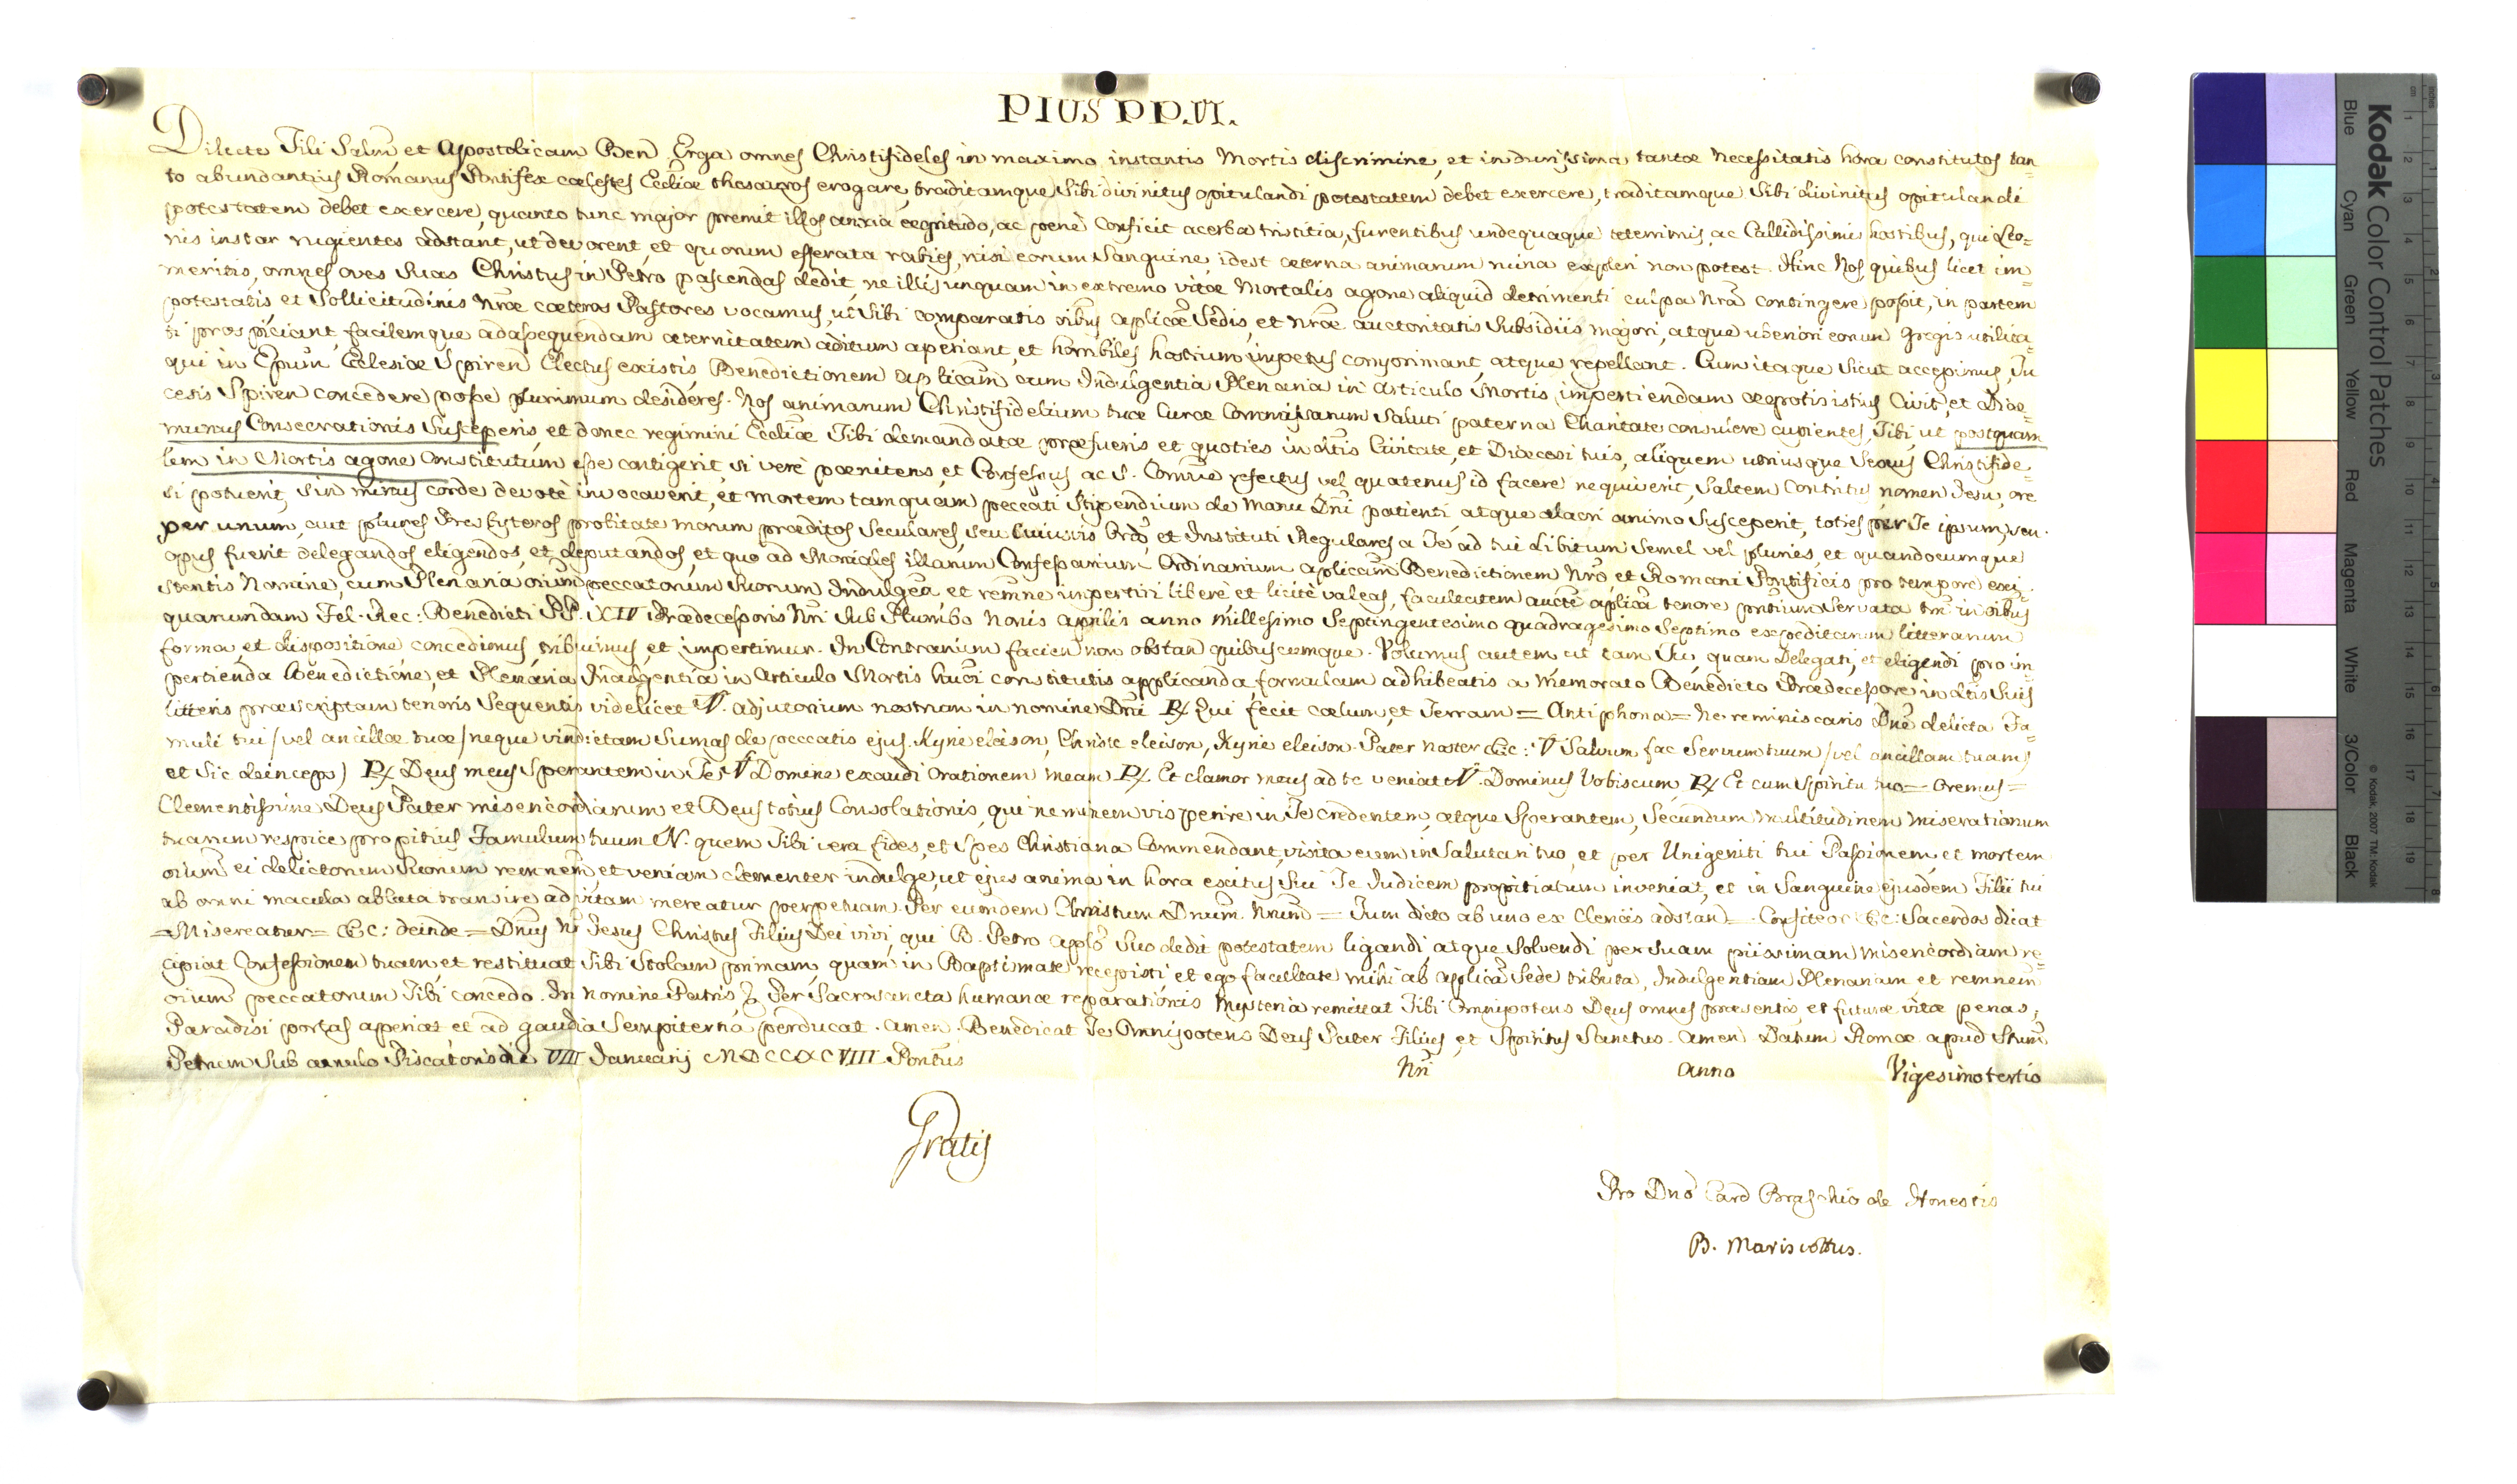 PIUS PP. VI.
Dilecte Fili Salm̃, et Apostolicam Ben Erga omnes Christifideles in maximo instantis Mortis discrimine, et in durissima tantæ Necessitatis hora constitutos tan=
to abundantius Romanus Pontifex cœlestes Ecclīæ thesauros erogare, traditamque Sibi divinitus opitulandi potestatem debet exercere, traditamque Sibi divinitus opitulandi
potestatem debet exercere, quanto tunc major premit illos anxia ægritudo, ac penè Conficit acerba tristitia, furentibus undequaque teterrimis, ac Callidissimis hostibus, qui Leo=
nis instar rugientes adstant, ut devorent, et quorum efferata rabies, nisi eorum Sanguine, idest æterna animarum ruina expleri non potest. Hinc Nos quibus licet im
meritis, omnes oves Suas Christus in Petro pascendas dedit, ne illis unquam in extremo vitæ Mortalis agone aliquid detrimenti culpa Nrā contingere possit, in partem
potestatis et Sollicitudinis Nrǣ cœteros Pastores vocamus, ut Sibi comparatis oībus aplicǣ Sedis, et Nrǣ auctoritatis Subsidiis majori, atque uberiori eorum Gregis utilita=
ti prospiciant, facilemque ad assequendam æternitatem aditum aperiant, et horribiles hostium impetus comprimant, atque repellant. Cum itaque Sicut accepimus, Tu
qui in Epum̃ Ecclesiæ Spiren Electus existis, Benedictionem Aplicam̃ cum Indulgentia Plenaria in Articulo Mortis impertiendam ægrotis istius Civit, et Diœ=
cesis Spiren concedere posse plurimum desideres. Nos animarum Christifidelium tuæ Curæ Commissarum Saluti paterna Charitate consulere cupientes, Tibi, ut postquam
munus Consecrationis Susceperis, et donec regimini Ecclīæ Tibi demandatæ præfueris et quoties in dtīs Civitate, et Diœcesi tuis, aliquem utriusque Sexus Christifide
lem in Mortis agone Constitutum esse contigerit, si verè pœnitens, et Confessus ac S. Comnīe refectus vel quatenus id facere nequiverit, Saltem Contritus nomen Jesu, ore
si potuerit, sin minus corde devotè invocaverit, et mortem tamquam peccati Stipendium de Manu Dnī patienti atque alacri animo Susceperit, toties per Te ipsum, seu
per unum, aut plures Prǣsbyteros probitate morum præditos Seculares, seu cuiusvis Ordīs, et Instituti Regulares a Te ad tui libitum Semel vel pluries, et quandocumque
opus fuerit delegandos eligendos, et deputandos, et quo ad Moniales illarum Confessarium Ordinarium aplicam̃ Benedictionem Nrō, et Romani Pontificis pro tempore exi=
stentis Nomine, cum Plenaria oriūm peccatorum Suorum Indulgēa et remnē impertiri liberè et licitè valeas, facultatem auctē aplicā tenore prntium Servata tn̄ in oībus
quarumdam Fel. Rec: Benedicti PP. XIV Prædecessoris Nrī Sub Plumbo Nonis Aprilis anno Millesimo Septingentesimo quadragesimo Septimo expeditarum litterarum
forma et dispositione concedimus tribuimus, et impertimur. In Contrarium facien non obstan quibuscumque. Volumus autem ut tam Tu, quam Delegati, et eligendi pro im=
pertienda Benedictione, et Plenaria Indulgentia in Articulo Mortis huci constitutis applicanda, formulam adhibeatis a memorato Benedicto Prædecessore in dtīs Suis
litteris præscriptam tenoris Sequentis videlicet ℣. Adjutorium nostrum in nomine Dnī ℟ Qui fecit cœlum, et Terram = Antiphona = Ne reminiscaris Dnē delicta Fa=
muli tui / vel ancillæ tuæ / neque vindictam Sumas de peccatis ejus. Kyrie eleison, Christe eleison, Kyrie eleison. Pater Noster &c: ℣ Salvum fac Servum tuum / vel ancillam tuam /
et Sic deinceps) ℟ Deus meus Sperantem in Te ℣ Domine exaudi Orationem meam ℟. Et clamor meus ad te veniat ℣. Dominus Vobiscum ℟ Et cum Spiritu tuo = Oremus =
Clementissime Deus Pater misericordiarum et Deus totius Consolationis, qui neminem vis perire in Te credentem, atque Sperantem, Secundum multitudinem miserationum
tuarum respice propitius Famulum tuum N. quem Tibi vera fides, et Spes Christiana Commendant, visita eum in Salutari tuo, et per Unigeniti tui Passionem, et mortem
oriūm ei delictorum Suorum remnem̃ et veniam clementer indulge, ut ejus anima in hora exitus Sui Te Judicem propitiatum inveniat, et in Sanguine ejusdem Filii tui
ab omni macula abluta transire ad vitam mereatur perpetuam. Per eumdem Christum Dnum̃ Nrum̃ = Tum dicto ab uno ex Clericis adstan = Confiteor &c: Sacerdos dicat
= Misereatur = &c: deinde = Dnūs Nr̃ Jesus Christus Filius Dei vivi, qui B. Petro Aplō Suo dedit potestatem ligandi, atque Solvendi per Suam piissimam misericordiam re=
cipiat Confessionem tuam, et restituat Tibi Stolam primam, quam in Baptismate recepisti et ego facultate mihi ab applicā Sede tributa, Indulgentiam Plenariam et remnem̃
oriūm peccatorum Tibi concedo. In nomine Patris, & Per Sacrosancta humanæ reparationis Mysteria remittat Tibi Omnipotens Deus omnes præsentis, et futuræ vitæ penas,
Paradisi portas aperiat et ad gaudia Sempiterna perducat. Amen. Benedicat Te Omnipotens Deus Pater Filius, et Spiritus Sanctus. Amen Datum Romæ apud Stum̃
Petrum Sub annulo Piscatoris die VIII Januarij MDCCXCVIII. Pontūs Nrī anno Vigesimotertio
Gratis
Pro Dnō Card Braschio de Honestis
B. Mariscottus.
Kodak Color Control Patches
Blue Cyan Green Yellow Red Magenta White 3/Color Black
© Kodak, 2007 TM: Kodak
inches 1 2 3 4 5 6 7 8
cm 1 2 3 4 5 6 7 8 9 10 11 12 13 14 15 16 17 18 19